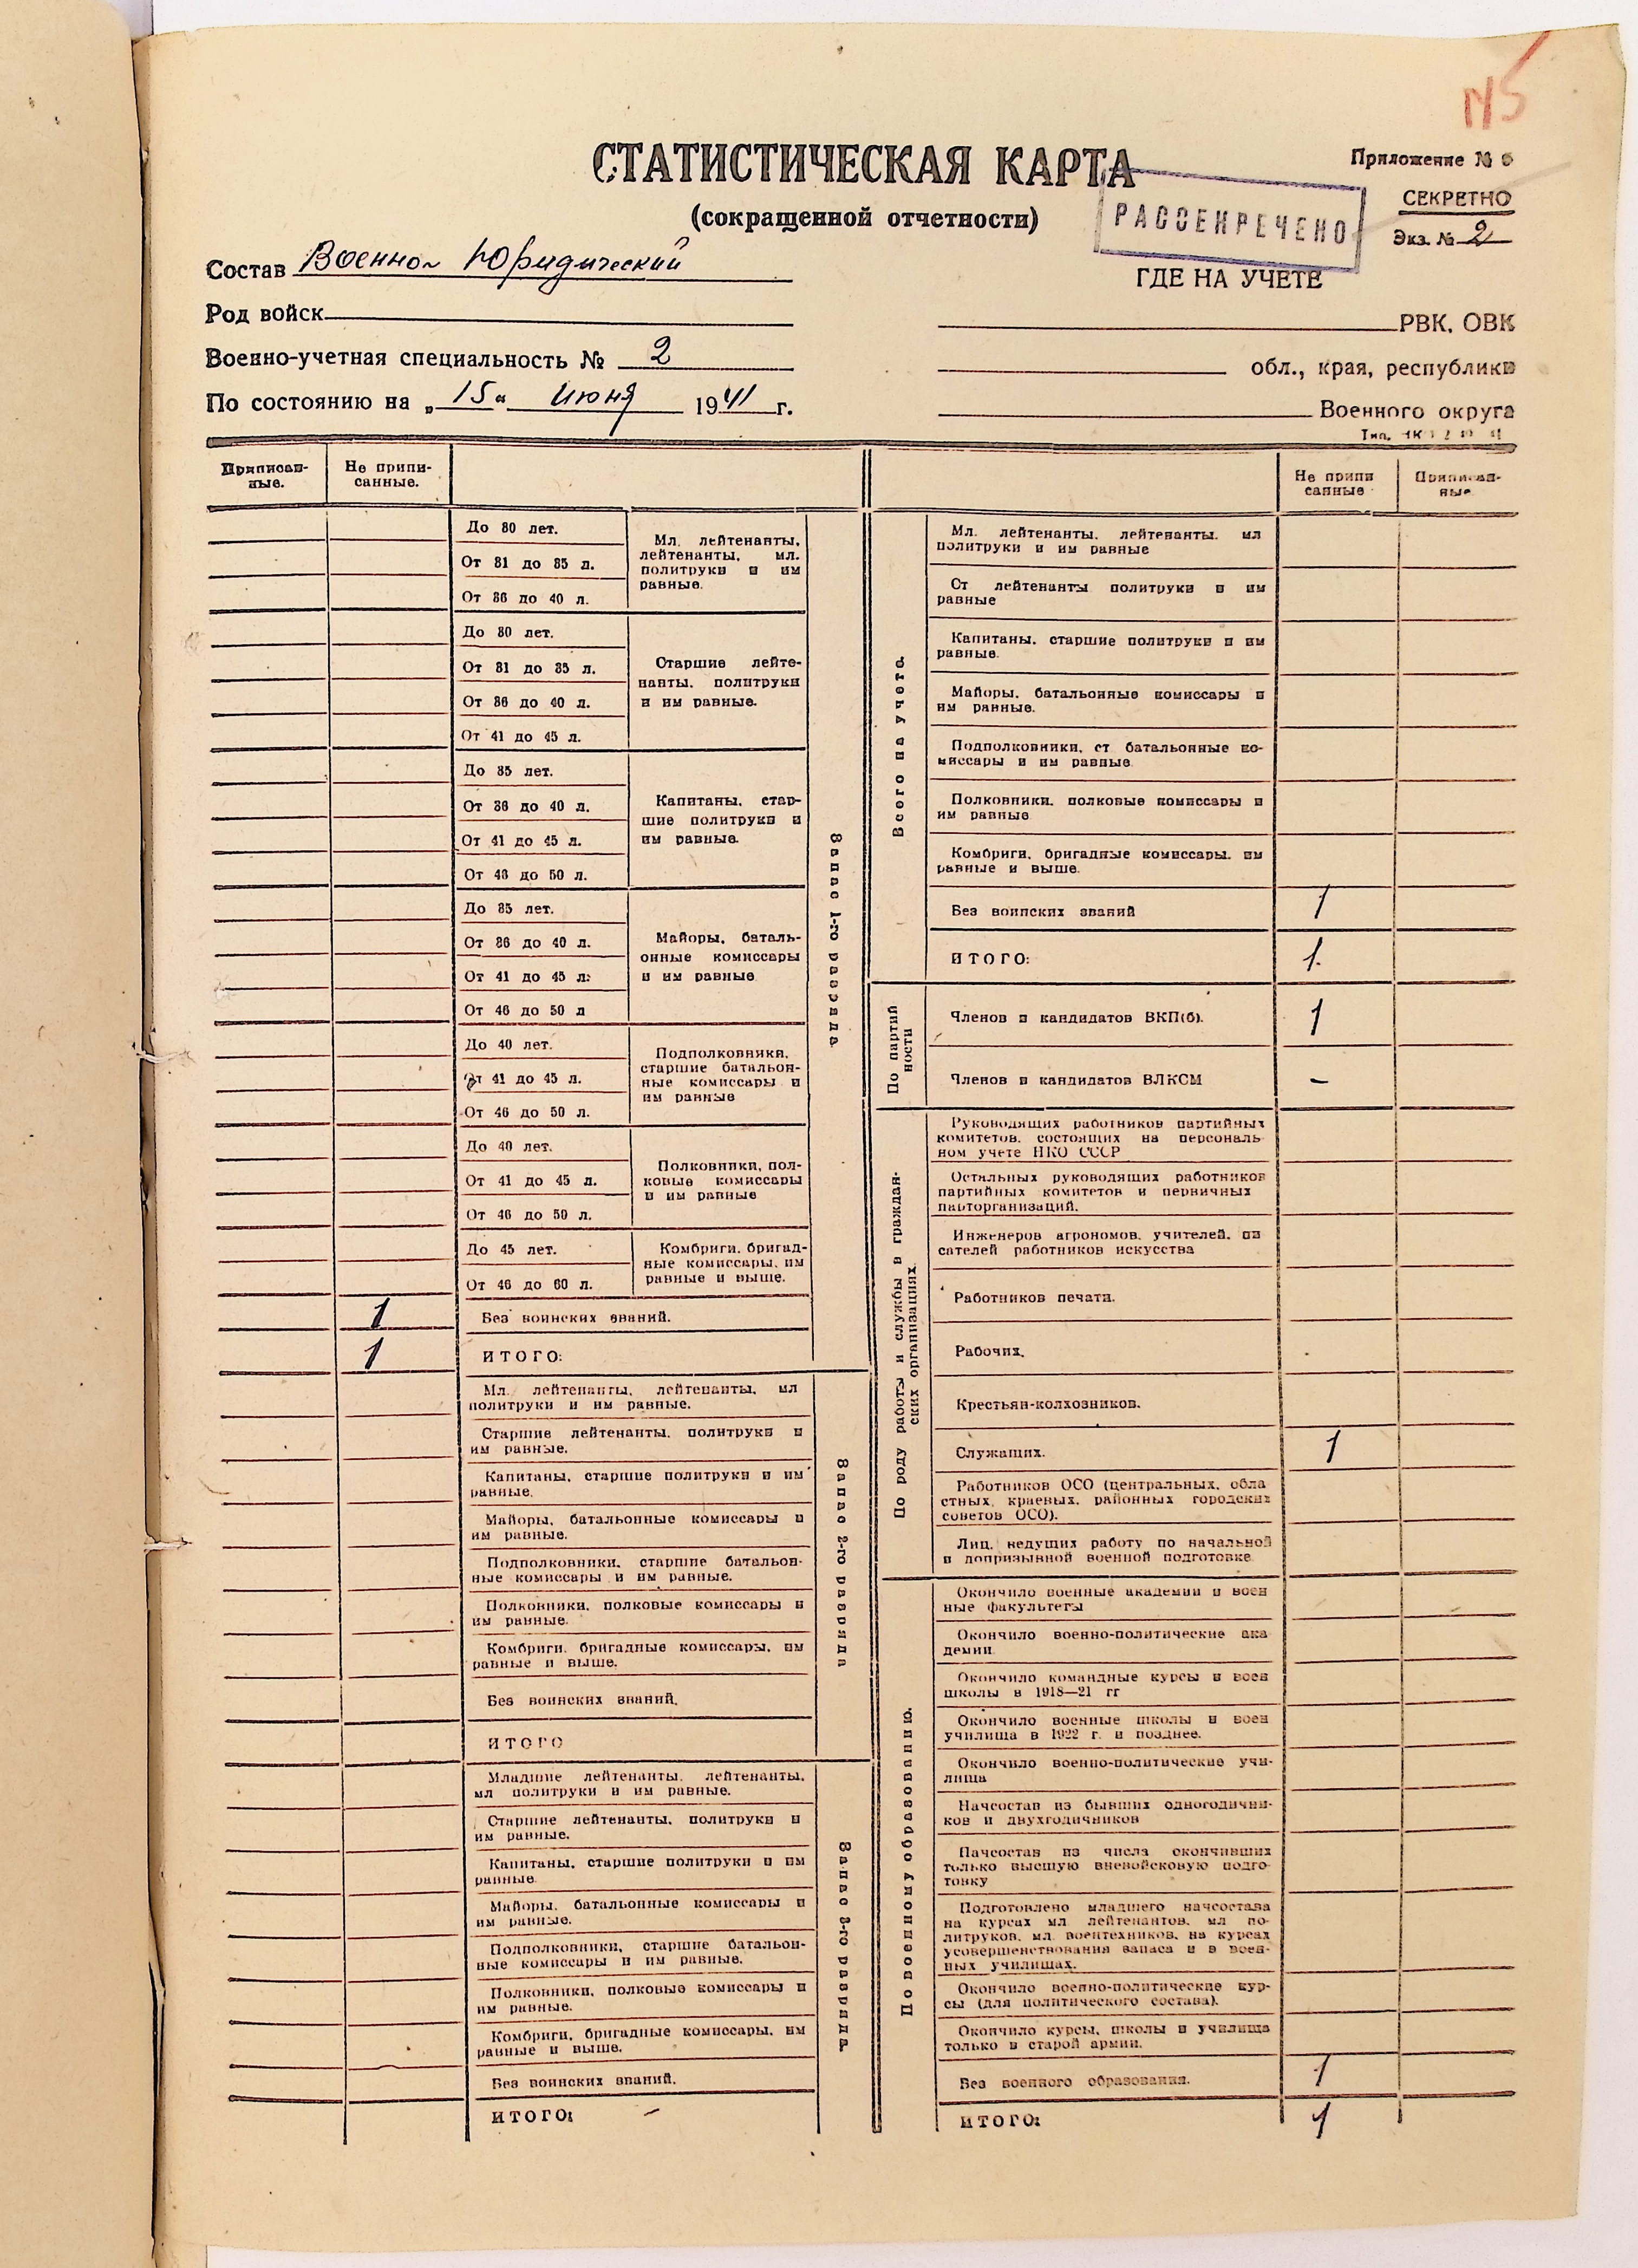 №5
СТАТИСТИЧЕСКАЯ КАРТА
(сокращенной отчетности)
Приложение №
СЕКРЕТНО
Экз. № 2
РАССЕКРЕЧЕНО
Состав Военно-Юридический
Род войск
Военно-учетная специальность № 2
По состоянию на „15“ июня 1941 г.
ГДЕ НА УЧЕТЕ
РВК, ОВК
обл., края, республики
Военного округа
Приписан-
ные.
Не припи-
санные.
До 30 лет.
От 31 до 35 л.
От 36 до 40 л.
Мл. лейтенанты,
лейтенанты, мл.
политруки и им
равные.
До 30 лет.
От 31 до 35 л.
От 36 до 40 л.
От 41 до 45 л.
Старшие лейте-
нанты, политруки
и им равные.
До 35 лет.
От 36 до 40 л.
От 41 до 45 л.
От 46 до 50 л.
Капитаны, стар-
шие политруки и
им равные.
До 35 лет.
От 36 до 40 л.
От 41 до 45 л.
От 46 до 50 л
Майоры, баталь-
онные комиссары
и им равные
До 40 лет.
От 41 до 45 л.
От 46 до 50 л.
Подполковники,
старшие батальон-
ные комиссары и
им равные
До 40 лет.
От 41 до 45 л.
От 46 до 50 л.
Полковники, пол-
ковые комиссары
и им равные
До 45 лет.
От 46 до 60 л.
Комбриги, бригад-
ные комиссары, им
равные и выше.
1 Без воинских званий.
1 ИТОГО:
Запас 1-го разряда.
Мл. лейтенанты, лейтенанты, мл
политруки и им равные.
Старшие лейтенанты, политруки и
им равные.
Капитаны, старшие политруки и им
равные.
Майоры, батальонные комиссары и
им равные.
Подполковники, старшие батальон-
ные комиссары и им равные.
Полковники, полковые комиссары и
им равные.
Комбриги, бригадные комиссары, им
равные и выше.
Без воинских званий.
ИТОГО
Запас 2-го разряда
Младшие лейтенанты, лейтенанты,
мл политруки и им равные.
Старшие лейтенанты, политруки и
им равные.
Капитаны, старшие политруки и им
равные
Майоры, батальонные комиссары и
им равные.
Подполковники, старшие батальон-
ные комиссары и им равные.
Полковники, полковые комиссары и
им равные.
Комбриги, бригадные комиссары, им
равные и выше.
Без воинских званий.
ИТОГО: –
Запас 3-го разряда.
Не припи
санные
Приписан-
ные
Всего на учете.
Мл. лейтенанты, лейтенанты, мл
политруки и им равные
Ст лейтенанты политруки и им
равные
Капитаны, старшие политруки и им
равные.
Майоры, батальонные комиссары и
им равные.
Подполковники, ст батальонные ко-
миссары и им равные
Полковники, полковые комиссары и
им равные
Комбриги, бригадные комиссары, им
равные и выше.
Без воинских званий 1
ИТОГО: 1.
По партий
ности
Членов и кандидатов ВКП(б). 1
Членов и кандидатов ВЛКСМ –
По роду работы и службы в граждан-
ских организациях.
Руководящих работников партийных
комитетов, состоящих на персональ
ном учете НКО СССР
Остальных руководящих работников
партийных комитетов и первичных
парторганизаций.
Инженеров агрономов, учителей, пи
сателей работников искусства
Работников печати.
Рабочих.
Крестьян-колхозников.
Служащих. 1
Работников ОСО (центральных, обла
стных, краевых, районных городских
советов ОСО).
Лиц, ведущих работу по начальной
и допризывной военной подготовке
По военному образованию.
Окончило военные академии и воен
ные факультеты
Окончило военно-политические ака
демии.
Окончило командные курсы и воен
школы в 1918—21 гг
Окончило военные школы и воен
училища в 1922 г. и позднее.
Окончило военно-политические учи-
лища
Начсостав из бывших одногодични-
ков и двухгодичников
Начсостав из числа окончивших
только высшую вневойсковую подго-
товку
Подготовлено младшего начсостава
на курсах мл лейтенантов, мл по-
литруков, мл. воентехников, на курсах
усовершенствования запаса и в воен-
ных училищах.
Окончило военно-политические кур-
сы (для политического состава).
Окончило курсы, школы и училища
только в старой армии.
Без военного образования. 1
ИТОГО: 1